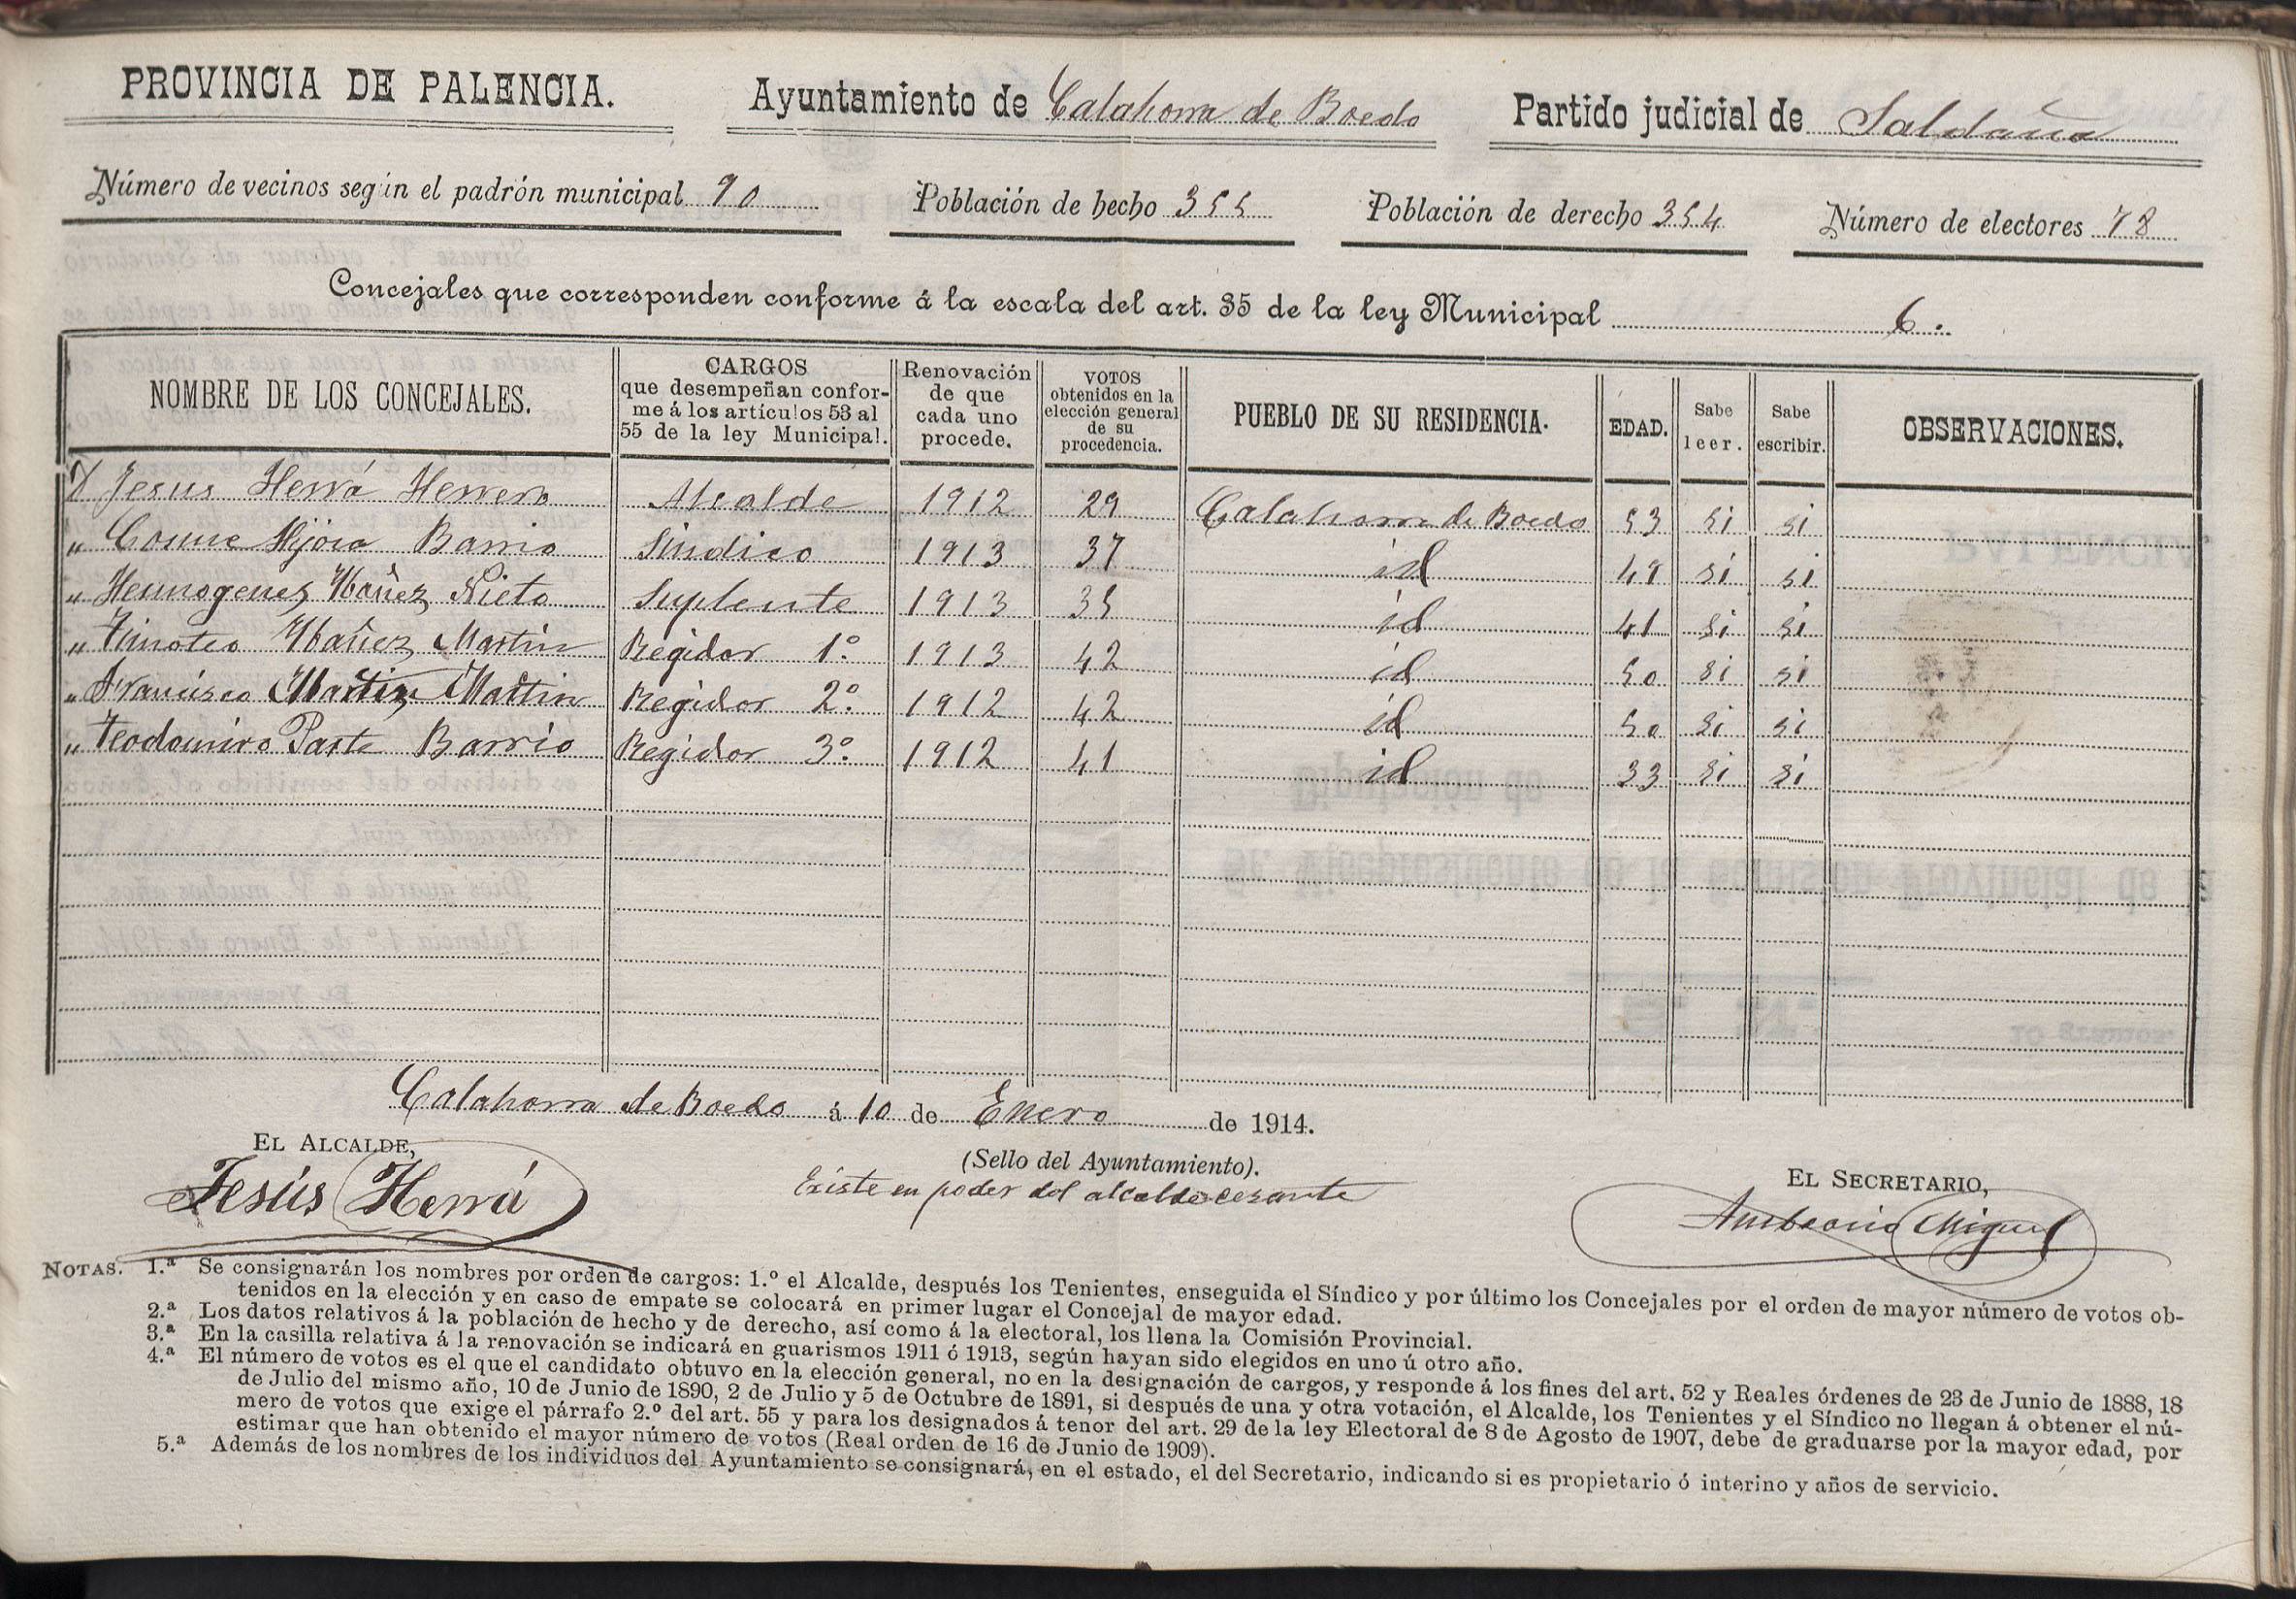 PROVINCIA DE PALENCIA. Ayuntamiento de Calahorra de Boedo Partido judicial de Saldaña
Número de vecinos según el padrón municipal 90 Población de hecho 355 Población de derecho 354 Número de electores 78
Concejales que corresponden conforme á la escala del art. 35 de la ley Municipal 6.
NOMBRE DE LOS CONCEJALES. CARGOS que desempeñan conforme á los artículos 53 al 55 de la ley Municipal. Renovación de que cada uno procede. VOTOS obtenidos en la elección general de su procedencia. PUEBLO DE SU RESIDENCIA. EDAD. Sabe leer. Sabe escribir. OBSERVACIONES.
D Jesus Herrá Herrero Alcalde 1912 29 Calahorra de Boedo 53 si si
" Cosme Hijosa Barrio Sindico 1913 37 id 48 si si
" Hermogenes Ybañez Nieto Suplente 1913 35 id 41 si si
" Timoteo Ybañez Martin Regidor 1º 1913 42 id 50 si si
" Francisco Martin Martin Regidor 2º 1912 42 id 50 si si
" Teodomiro Parte Barrio Regidor 3º 1912 41 id 33 si si
Calahorra de Boedo á 10 de Enero de 1914.
EL ALCALDE, (Sello del Ayuntamiento). EL SECRETARIO,
Jesús Herrá Existe en poder del alcalde cesante Ambrosio Miguel
NOTAS. 1.ª Se consignarán los nombres por orden de cargos: 1.º el Alcalde, después los Tenientes, enseguida el Síndico y por último los Concejales por el orden de mayor número de votos ob-
tenidos en la elección y en caso de empate se colocará en primer lugar el Concejal de mayor edad.
2.ª Los datos relativos á la población de hecho y de derecho, así como á la electoral, los llena la Comisión Provincial.
3.ª En la casilla relativa á la renovación se indicará en guarismos 1911 ó 1913, según hayan sido elegidos en uno ú otro año.
4.ª El número de votos es el que el candidato obtuvo en la elección general, no en la designación de cargos, y responde á los fines del art. 52 y Reales órdenes de 23 de Junio de 1888, 18
de Julio del mismo año, 10 de Junio de 1890, 2 de Julio y 5 de Octubre de 1891, si después de una y otra votación, el Alcalde, los Tenientes y el Síndico no llegan á obtener el nú-
mero de votos que exige el párrafo 2.º del art. 55 y para los designados á tenor del art. 29 de la ley Electoral de 8 de Agosto de 1907, debe de graduarse por la mayor edad, por
estimar que han obtenido el mayor número de votos (Real orden de 16 de Junio de 1909).
5.ª Además de los nombres de los individuos del Ayuntamiento se consignará, en el estado, el del Secretario, indicando si es propietario ó interino y años de servicio.